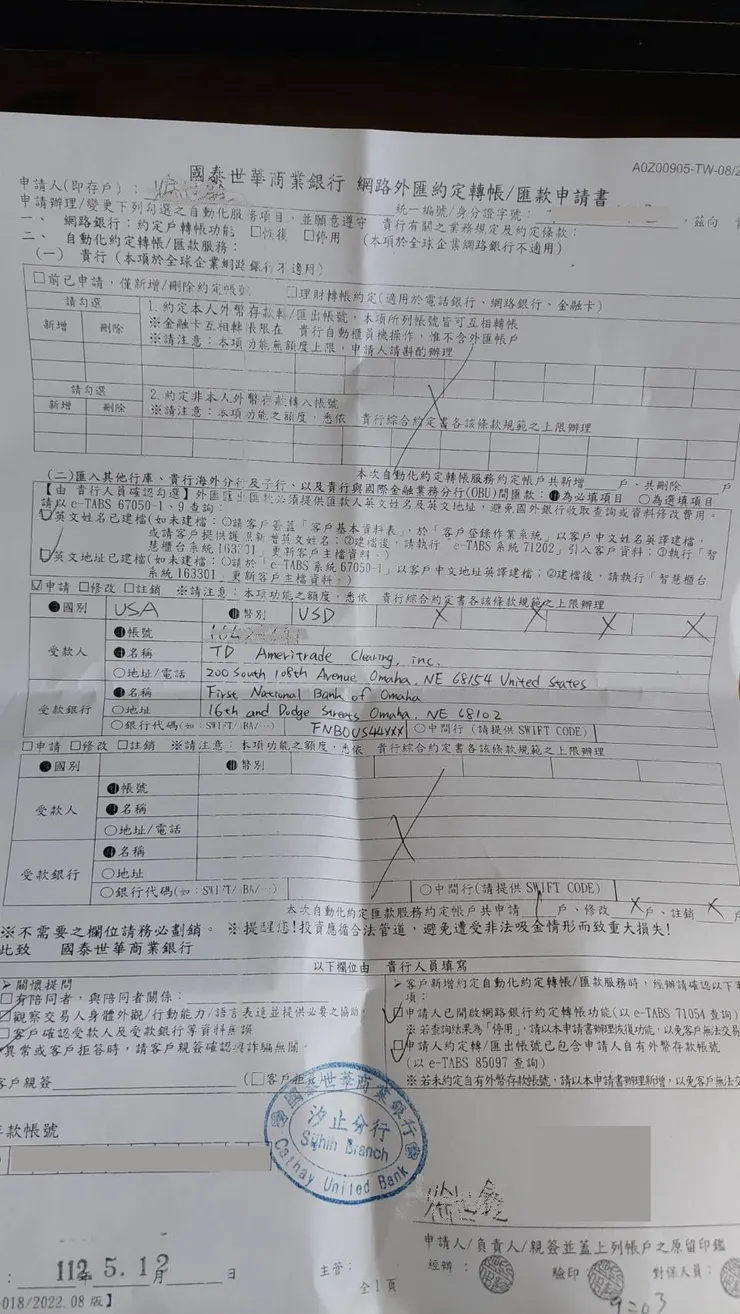 A0Z00905-TW-08/2
國泰世華商業銀行 網路外匯約定轉帳/匯款申請書
申請人(即存戶)：
統一編號/身分證字號：
，茲向 貴
申請辦理/變更下列勾選之自動化服務項目，並願意遵守 貴行有關之業務規定及約定條款：
一、 網路銀行：約定戶轉帳功能 □恢復 □停用 (本項於全球企業網路銀行不適用)
二、 自動化約定轉帳/匯款服務：
(一) 貴行(本項於全球企業網路銀行不適用)
□前已申請，僅新增/刪除約定帳號 □理財轉帳約定(適用於電話銀行、網路銀行、金融卡)
請勾選
新增 刪除
1.約定本人外幣存款轉/匯出帳號，本項所列帳號皆可互相轉帳
※金融卡互相轉帳限在 貴行自動櫃員機操作，惟不含外匯帳戶
※請注意：本項功能無額度上限，申請人請斟酌辦理
請勾選
新增 刪除
2.約定非本人外幣存款轉入帳號
※請注意：本項功能之額度，悉依 貴行綜合約定書各該條款規範之上限辦理
本次自動化約定轉帳服務約定帳戶共新增 戶、共刪除 戶
(二)匯入其他行庫、貴行海外分行及子行、以及貴行與國際金融業務分行(OBU)間匯款：●為必填項目 ○為選填項目
【由 貴行人員確認勾選】外匯匯出匯款必須提供匯款人英文姓名及英文地址，避免國外銀行收取查詢或資料修改費用。
請以 e-TABS 67050-1、9 查詢：
☑英文姓名已建檔(如未建檔：①請客戶簽蓋「客戶基本資料表」，於「客戶登錄作業系統」以客戶中文姓名英譯建檔，
或請客戶提供護照新增英文姓名；②建檔後，請執行「e-TABS 系統 71202」引入客戶資料；③執行「智
慧櫃台系統 163301」更新客戶主檔資料。)
☑英文地址已建檔(如未建檔：①請於「e-TABS 系統 67050-1」以客戶中文地址英譯建檔；②建檔後，請執行「智慧櫃台
系統 163301」更新客戶主檔資料。)
☑申請 □修改 □註銷 ※請注意：本項功能之額度，悉依 貴行綜合約定書各該條款規範之上限辦理
●國別 USA ●幣別 USD
受款人
●帳號
●名稱 TD Ameritrade Clearing, inc.
○地址/電話 200 South 108th Avenue Omaha, NE 68154 United States
受款銀行
●名稱 First National Bank of Omaha
○地址 16th and Dodge Streets Omaha, NE 68102
○銀行代碼(如：SWIFT/IBA/…) FNBOUS44XXX ○中間行(請提供 SWIFT CODE)
□申請 □修改 □註銷 ※請注意：本項功能之額度，悉依 貴行綜合約定書各該條款規範之上限辦理
●國別 ●幣別
受款人
●帳號
●名稱
○地址/電話
受款銀行
●名稱
○地址
○銀行代碼(如：SWIFT/IBA/…) ○中間行(請提供 SWIFT CODE)
本次自動化約定匯款服務約定帳戶共申請 1 戶、修改 X 戶、註銷 X 戶
※不需要之欄位請務必劃銷。 ※提醒您!投資應循合法管道，避免遭受非法吸金情形而致重大損失!
此致 國泰世華商業銀行
以下欄位由 貴行人員填寫
➢關懷提問
□有陪同者，與陪同者關係：
☑觀察交易人身體外觀/行動能力/語言表達並提供必要之協助。
□客戶確認受款人及受款銀行等資料無誤
異常或客戶拒答時，請客戶親簽確認與詐騙無關。
客戶親簽 (□客戶拒
➢客戶新增約定自動化約定轉帳/匯款服務時，經辦請確認以下事
項：
☑申請人已開啟網路銀行約定轉帳功能(以 e-TABS 71054 查詢)
※若查詢結果為「停用」，請以本申請書辦理恢復功能，以免客戶無法交易
☑申請人約定轉/匯出帳號已包含申請人自有外幣存款帳號
(以 e-TABS 85097 查詢)
※若未約定自有外幣存款帳號，請以本申請書辦理新增，以免客戶無法交
國泰世華商業銀行
汐止分行
Sijhih Branch
Cathay United Bank
存款帳號
申請人/負責人/親簽並蓋上列帳戶之原留印鑑
112 年 5. 月 12 日
主管：
經辦：
驗印：
對保人員：
全 1 頁
9203
018/2022.08 版】